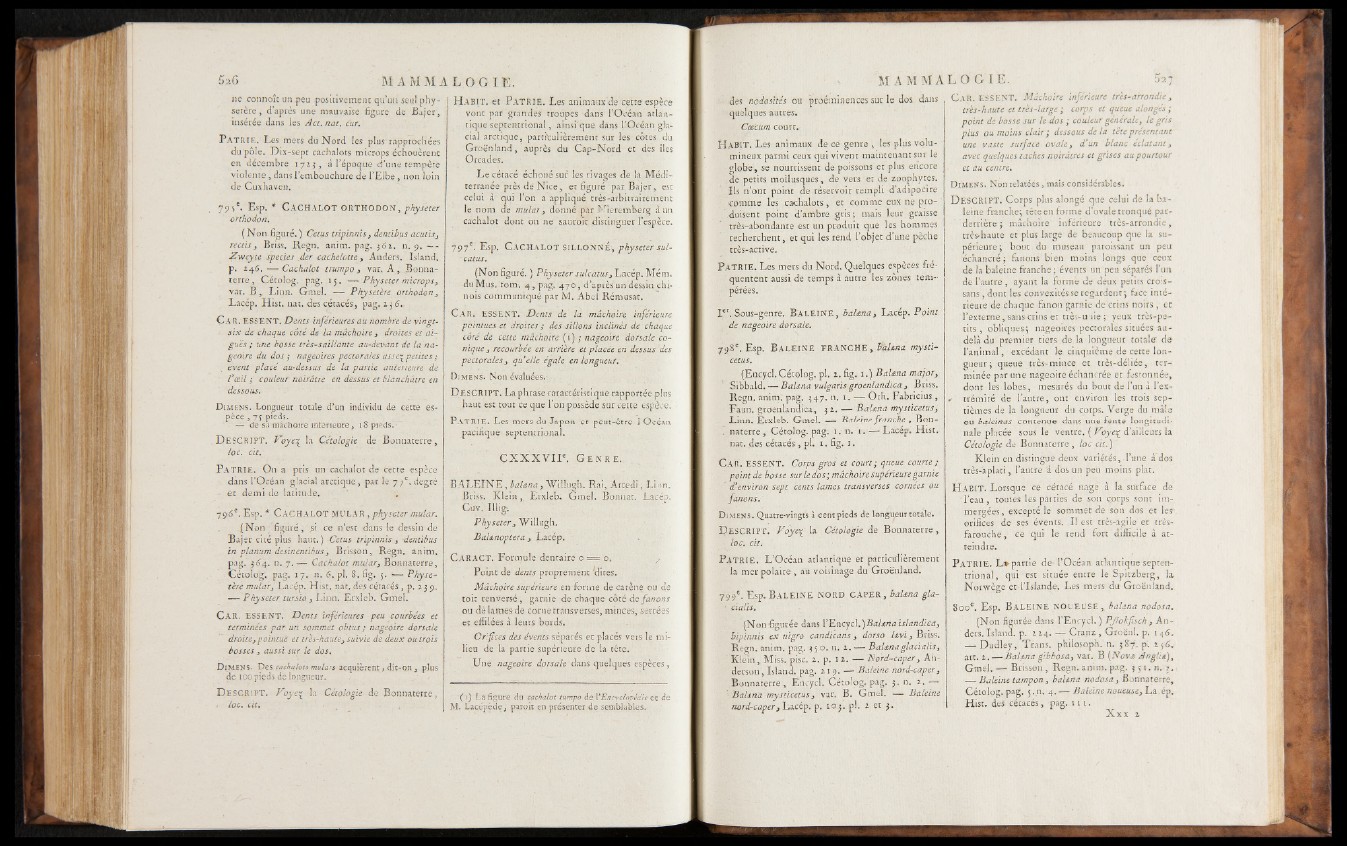 526
MAMMALOGIE.
ne connoît un peu positivement qu'un seul phy-
setère, d'après une mauvaise figure de Bajer,
insérée dans les Act. nat. cur.
PATRIE. Les mers du Nord les plus rapprochées
du pôle. Dix-sept cachalots microps échouèrent
en décembre 1723, à l'époque d'une tempête
violente, dans l'embouchure de l'Elbe, non loin
de Cuxhaven.
795e. Esp. * CACHALOT ORTHODON, physeter
orthodon.
(Non figuré.) Cetus tripinnis, dentibus acutis,
rectis, Briss. Regn. anim. pag. 362. n. 9. —
Zweyte species der cachelotte, Anders. Island.
p. 246. — Cachalot trumpo, var. A, Bonna-
terre, Cétolog. pag. 15. — Physeter microps,
var. B, Linn. Gmel. — Physetère orthodon,
Lacép. Hist. nat. des cétacés, pag. 236.
CAR. ESSENT. Dents inférieures au nombre de vingt-
six de chaque côté de la mâchoire, droites et ai-
guës; une bosse très-saillante au-devant de la na-
geoire du dos; nageoires pectorales assez petites;
évent placé au-dessus de la partie antérieure de
l'œil; couleur noirâtre en dessus et blanchâtre en
dessous.
DIMENS. Longueur totale d'un individu de cette es-
pèce, 75 pieds.
— de sa mâchoire inférieure, 18 pieds.
DESCRIPT. Voyez la Cétologie de Bonnaterre,
loc. cit.
PATRIE. On a pris un cachalot de cette espèce
dans l'Océan glacial arctique, par le 77e. degré
et demi de latitude.
796e. Esp. * CACHALOT MULAR, physeter mular.
(Non figuré, si ce n'est dans le dessin de
Bajer cité plus haut.) Cetus tripinnis, dentibus
in planum desinentibus, Brisson, Regn. anim.
pag. 364. n. 7. — Cachalot mular, Bonnaterre,
Cétolog. pag. 17. n. 6. pl. 8. fig. 5. — Physe-
tère mular, Lacép. Hist. nat. des cétacés, p. 239.
— Physeter tursio, Linn. Erxleb. Gmel.
CAR. ESSENT. Dents inférieures peu courbées et
terminées par un sommet obtus; nageoire dorsale
droite, pointue et très-haute, suivie de deux ou trois
bosses, aussi sur le dos.
DIMENS. Des cachalots mulars acquièrent, dit-on, plus
de 100 pieds de longueur.
DESCRIPT. Voyez la Cétologie de Bonnaterre,
loc. cit.
HABIT. et PATRIE. Les animaux de cette espèce
vont par grandes troupes dans l'Océan atlan-
tique septentrional, ainsi que dans l'Océan gla-
cial arctique, particulièrement sur les côtes du
Groënland, auprès du Cap-Nord et des îles
Orcades.
Le cétacé échoué sur les rivages de la Médi-
terranée près de Nice, et figuré par Bajer, est
celui à qui l'on a appliqué très-arbitrairement
le nom de mular, donné par Nieremberg à un
cachalot dont on ne sauroit distinguer l'espèce.
797e. Esp. CACHALOT SILLONNÉ, physeter sul-
catus.
(Non figuré.) Physeter sulcatus, Lacép. Mém.
du Mus. tom. 4, pag. 470, d'après un dessin chi-
nois communiqué par M. Abel Rémusat.
CAR. ESSENT. Dents de la mâchoire inférieure
pointues et droites; des sillons inclinés de chaque
côté de cette mâchoire (1); nageoire dorsale co-
nique, recourbée en arrière et placée en dessus des
pectorales, qu'elle égale en longueur.
DIMENS. Non évaluées.
DESCRIPT. La phrase caractéristique rapportée plus
haut est tout ce que l'on possède sur cette espèce.
PATRIE. Les mers du Japon et peut-être l'Océan
pacifique septentrional.
CXXXVIIe. GENRE.
BALEINE, balena, Willugh. Rai, Artedi, Linn.
Briss. Klein, Erxleb. Gmel. Bonnat. Lacép.
Cuv. Illig.
Physeter, Willugh.
Balænoptera, Lacép.
CARACT. Formule dentaire 0 = 0.
Point de dents proprement dites.
Mâchoire supérieure en forme de carène ou de
toit renversé, garnie de chaque côté de fanons
ou de lames de corne transverses, minces, serrées
et effilées à leurs bords.
Orifices des évents séparés et placés vers le mi-
lieu de la partie supérieure de la tête.
Une nageoire dorsale dans quelques espèces,
(1) La figure du cachalot tumpo de l'Encyclopédie et de
M. Lacépède, paroît en présenter de semblables.
MAMMALOGIE.
527
des nodosités ou proéminences sur le dos dans
quelques autres.
Cœcum court.
HABIT. Les animaux de ce genre, les plus volu-
mineux parmi ceux qui vivent maintenant sur le
globe, se nourrissent de poissons et plus encore
de petits mollusques, de vers et de zoophytes.
Ils n'ont point de réservoir rempli d'adipocire
comme les cachalots, et comme eux ne pro-
duisent point d'ambre gris; mais leur graisse
très-abondante est un produit que les hommes
recherchent, et qui les rend l'objet d'une pêche
très-active.
PATRIE. Les mers du Nord. Quelques espèces fré-
quentent aussi de temps à autre les zônes tem-
pérées.
Ier. Sous-genre. BALEINE, balena, Lacép. Point
de nageoire dorsale.
798e. Esp. BALEINE FRANCHE, balena mysti-
cetus.
(Encycl. Cétolog. pl. 2. fig. 1.) Balena major,
Sibbald. — Balena vulgaris groenlandica, Briss.
Regn. anim. pag. 347. n. 1. — Oth. Fabricius,
Faun. groenlandica, 32. — Balena mysticetus,
Linn. Erxleb. Gmel. — Baleine franche, Bon-
naterre, Cétolog. pag. 1. n. 1. — Lacép. Hist.
nat. des cétacés, pl. 1. fig. 1.
CAR. ESSENT. Corps gros et court; queue courte;
point de bosse sur le dos; mâchoire supérieure garnie
d'environ sept cents lames transverses cornées ou
fanons.
DIMENS. Quatre-vingts à cent pieds de longueur totale.
DESCRIPT. Voyez la Cétologie de Bonnaterre,
loc. cit.
PATRIE. L'Océan atlantique et particulièrement
la mer polaire, au voisinage du Groënland.
799e. Esp. BALEINE NORD CAPER, balena gla-
cialis.
(Non figurée dans l'Encycl.) Balena islandica,
bipinnis ex nigro candicans, dorso levi, Briss.
Regn. anim. pag. 350. n. 2. — Balena glacialis,
Klein, Miss. pisc. 2. p. 12. — Nord-caper, An-
derson, Island. pag. 219. — Baleine nord-caper,
Bonnaterre, Encycl. Cétolog. pag. 3. n. 2. —
Balena mysticetus, var. B. Gmel. — Baleine
nord-caper, Lacép. p. 103. pl. 2 et 3.
CAR. ESSENT. Mâchoire inférieure très-arrondie,
très-haute et très-large; corps et queue alongés;
point de bosse sur le dos; couleur générale, le gris
plus ou moins clair; dessous de la tête présentant
une vaste surface ovale, d'un blanc éclatant,
avec quelques taches noirâtres et grises au pourtour
et au centre.
DIMENS. Non relatées, mais considérables.
DESCRIPT. Corps plus alongé que celui de la ba-
leine franche; tête en forme d'ovale tronqué par-
derrière; mâchoire inférieure très-arrondie,
très-haute et plus large de beaucoup que la su-
périeure; bout du museau paroissant un peu
échancré; fanons bien moins longs que ceux
de la baleine franche; évents un peu séparés l'un
de l'autre, ayant la forme de deux petits crois-
sans, dont les convexités se regardent; face inté-
rieure de chaque fanon garnie de crins noirs, et
l'externe, sans crins et très-unie; yeux très-pe-
tits, obliques; nageoires pectorales situées au-
delà du premier tiers de la longueur totale de
l'animal, excédant le cinquième de cette lon-
gueur; queue très-mince et très-déliée, ter-
minée par une nageoire échancrée et festonnée,
dont les lobes, mesurés du bout de l'un à l'ex-
trémité de l'autre, ont environ les trois sep-
tièmes de la longueur du corps. Verge du mâle
ou balenas contenue dans une fente longitudi-
nale placée sous le ventre. (Voyez d'ailleurs la
Cétologie de Bonnaterre, loc. cit.)
Klein en distingue deux variétés, l'une à dos
très-aplati, l'autre à dos un peu moins plat.
HABIT. Lorsque ce cétacé nage à la surface de
l'eau, toutes les parties de son corps sont im-
mergées, excepté le sommet de son dos et les
orifices de ses évents. Il est très-agile et très-
farouche, ce qui le rend fort difficile à at-
teindre.
PATRIE. La partie de l'Océan atlantique septen-
trional, qui est située entre le Spitzberg, la
Norwège et l'Islande. Les mers du Groënland.
800e. Esp. BALEINE NOUEUSE, balena nodosa.
(Non figurée dans l'Encycl.) Pflokfisch, An-
ders. Island. p. 224. — Crantz, Groënl. p. 146.
— Dudley, Trans. philosoph. n. 387. p. 256.
art. 2. — Balena gibbosa, var. B (Nova Anglia),
Gmel. — Brisson, Regn. anim. pag. 351. n. 3.
— Baleine tampon, balena nodosa, Bonnaterre,
Cétolog. pag. 5. n. 4. — Baleine noueuse, Lacép.
Hist. des cétacés, pag. 111.
Xxx 2